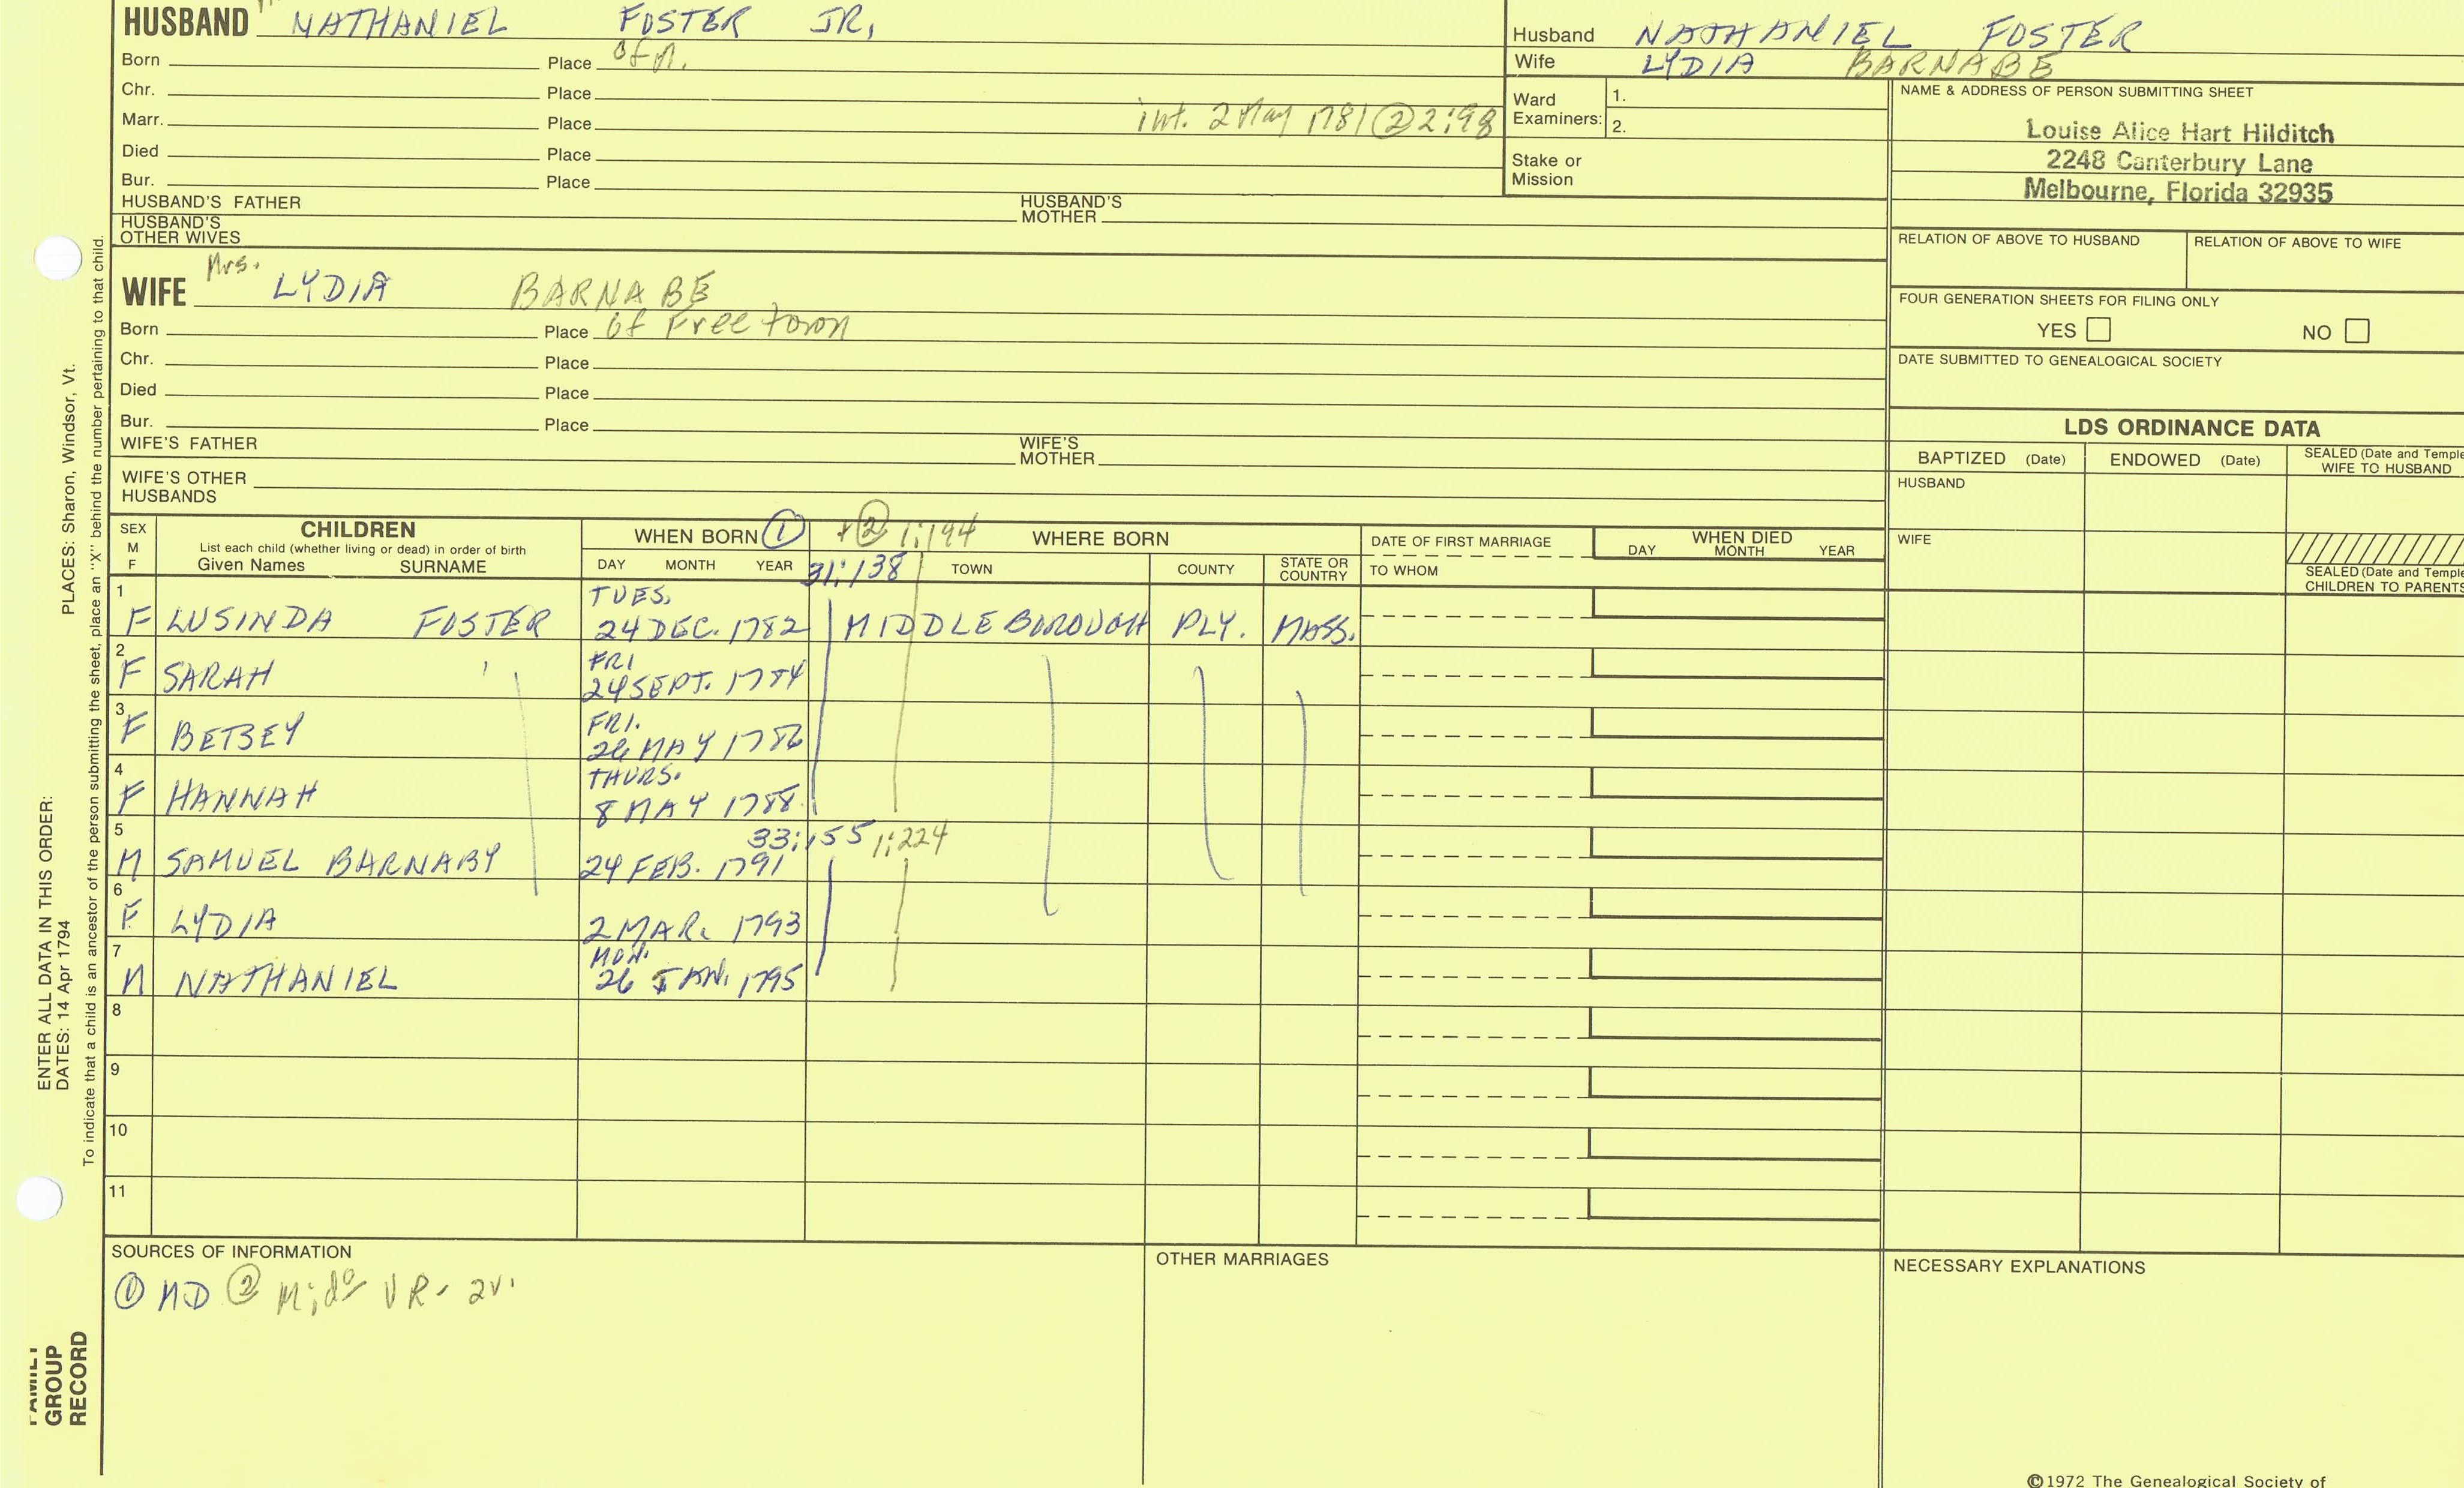 HUSBAND NATHANIEL FOSTER JR,
Born Place of M.
Chr. Place
Marr. Place int. 2 May 1781 ② 2:98
Died Place
Bur. Place
HUSBAND'S FATHER HUSBAND'S MOTHER
HUSBAND'S OTHER WIVES
Husband NATHANIEL FOSTER
Wife LYDIA BARNABE
Ward Examiners: 1.
2.
Stake or Mission
NAME & ADDRESS OF PERSON SUBMITTING SHEET
Louise Alice Hart Hilditch
2248 Canterbury Lane
Melbourne, Florida 32935
RELATION OF ABOVE TO HUSBAND RELATION OF ABOVE TO WIFE
FOUR GENERATION SHEETS FOR FILING ONLY
YES NO
DATE SUBMITTED TO GENEALOGICAL SOCIETY
Mrs.
WIFE LYDIA BARNABE
Born Place of Freetown
Chr. Place
Died Place
Bur. Place
WIFE'S FATHER WIFE'S MOTHER
WIFE'S OTHER HUSBANDS
LDS ORDINANCE DATA
BAPTIZED (Date) ENDOWED (Date) SEALED (Date and Temple
WIFE TO HUSBAND
HUSBAND
WIFE
SEALED (Date and Temple
CHILDREN TO PARENTS
SEX
M
F
CHILDREN
List each child (whether living or dead) in order of birth
Given Names SURNAME
WHEN BORN ① + ② 1:194
DAY MONTH YEAR 31:138
WHERE BORN
TOWN COUNTY STATE OR COUNTRY
DATE OF FIRST MARRIAGE
TO WHOM
WHEN DIED
DAY MONTH YEAR
1 TUES.
F LUSINDA FOSTER 24 DEC. 1782 MIDDLEBOROUGH PLY. MASS.
2 FRI
F SARAH 24 SEPT. 1784
3 FRI.
F BETSEY 26 MAY 1786
4 THURS.
F HANNAH 8 MAY 1788
5 33:155 1:224
M SAMUEL BARNABY 24 FEB. 1791
6
F LYDIA 2 MAR. 1793
7 MON.
M NATHANIEL 26 JAN. 1795
8
9
10
11
SOURCES OF INFORMATION
① MD ② Midº VR - 2v.
OTHER MARRIAGES
NECESSARY EXPLANATIONS
©1972 The Genealogical Society of
ENTER ALL DATA IN THIS ORDER:
DATES: 14 Apr 1794 PLACES: Sharon, Windsor, Vt.
To indicate that a child is an ancestor of the person submitting the sheet, place an "X" behind the number pertaining to that child.
FAMILY
GROUP
RECORD